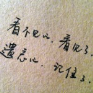 看不见了，看见了，
遗忘了，记住了。